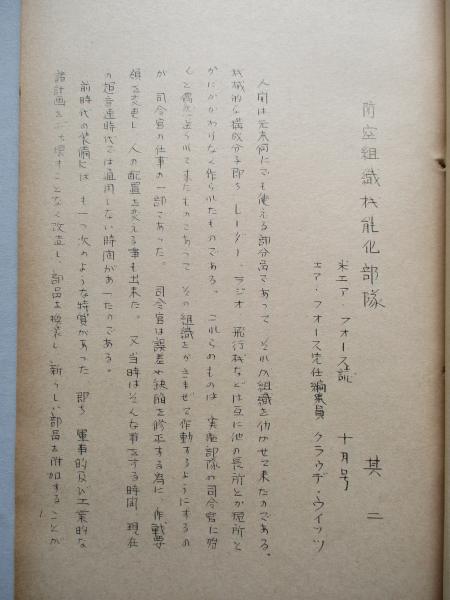 防空組織機能化部隊 其二
米エア・フォース誌 十月号
エア・フォース先任編集員 クラウデ・ウイッツ
人間は元来何にでも使える部分品であって それが組織を働かせて来たのである。
機械的な構成分子即ち レーダー、ラジオ 飛行機などは互に他の長所とか短所と
かにかかわりなく作られたものである。 これらのものは 実際部隊の司令官に殆
んど偶然送られて来たものであって その組織をかきまぜて作動するようにするの
が 司令官の仕事の一部であった。 司令官は誤差や缺陥を修正する為に 作戦要
領を変更し 人の配置を変える事も出来た。 又当時はそんな事をする時間、現在
の超音速時代では通用しない時間があったのである。
前時代の装備には も一つ次のような特質があった 即ち 軍事的及び工業的な
諸計画をぶち壊すことなく改造し、部品を換装し 新らしい部品を附加することが
1.